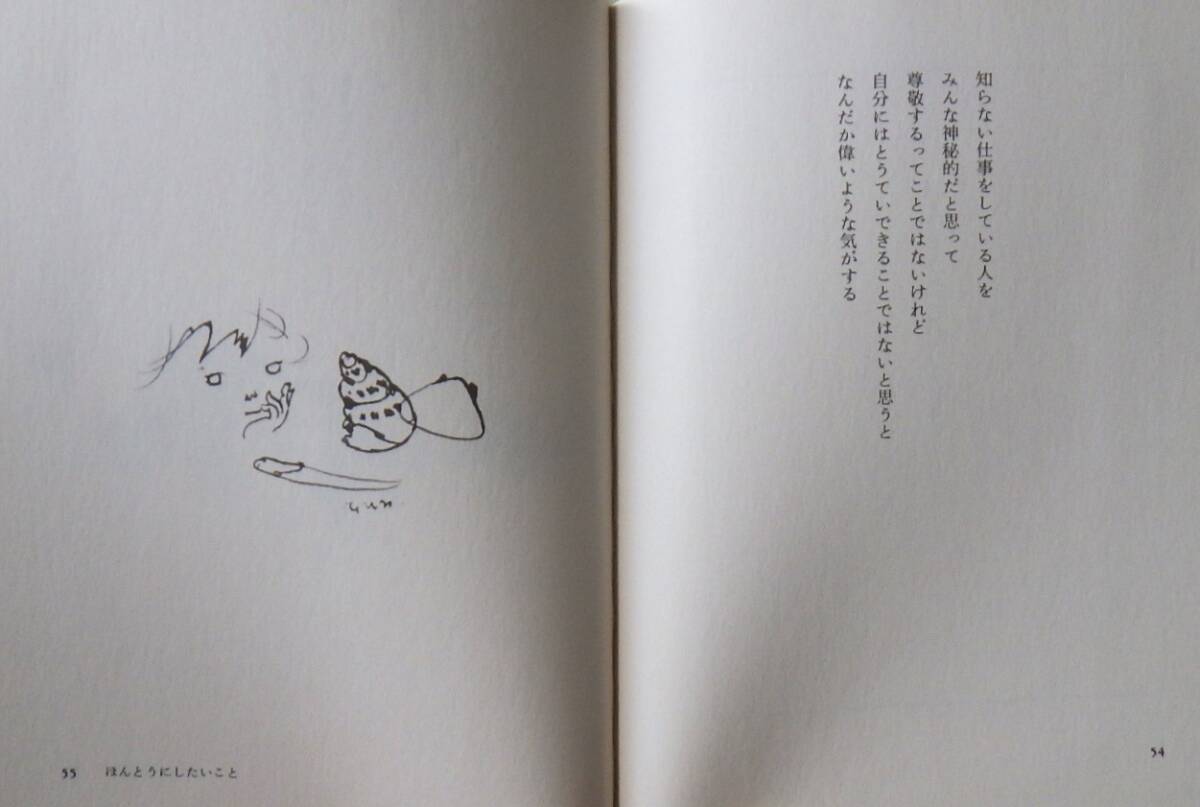 知らない仕事をしている人を
みんな神秘的だと思って
尊敬するってことではないけれど
自分にはとうていできることではないと思うと
なんだか偉いような気がする
54
55 ほんとうにしたいこと